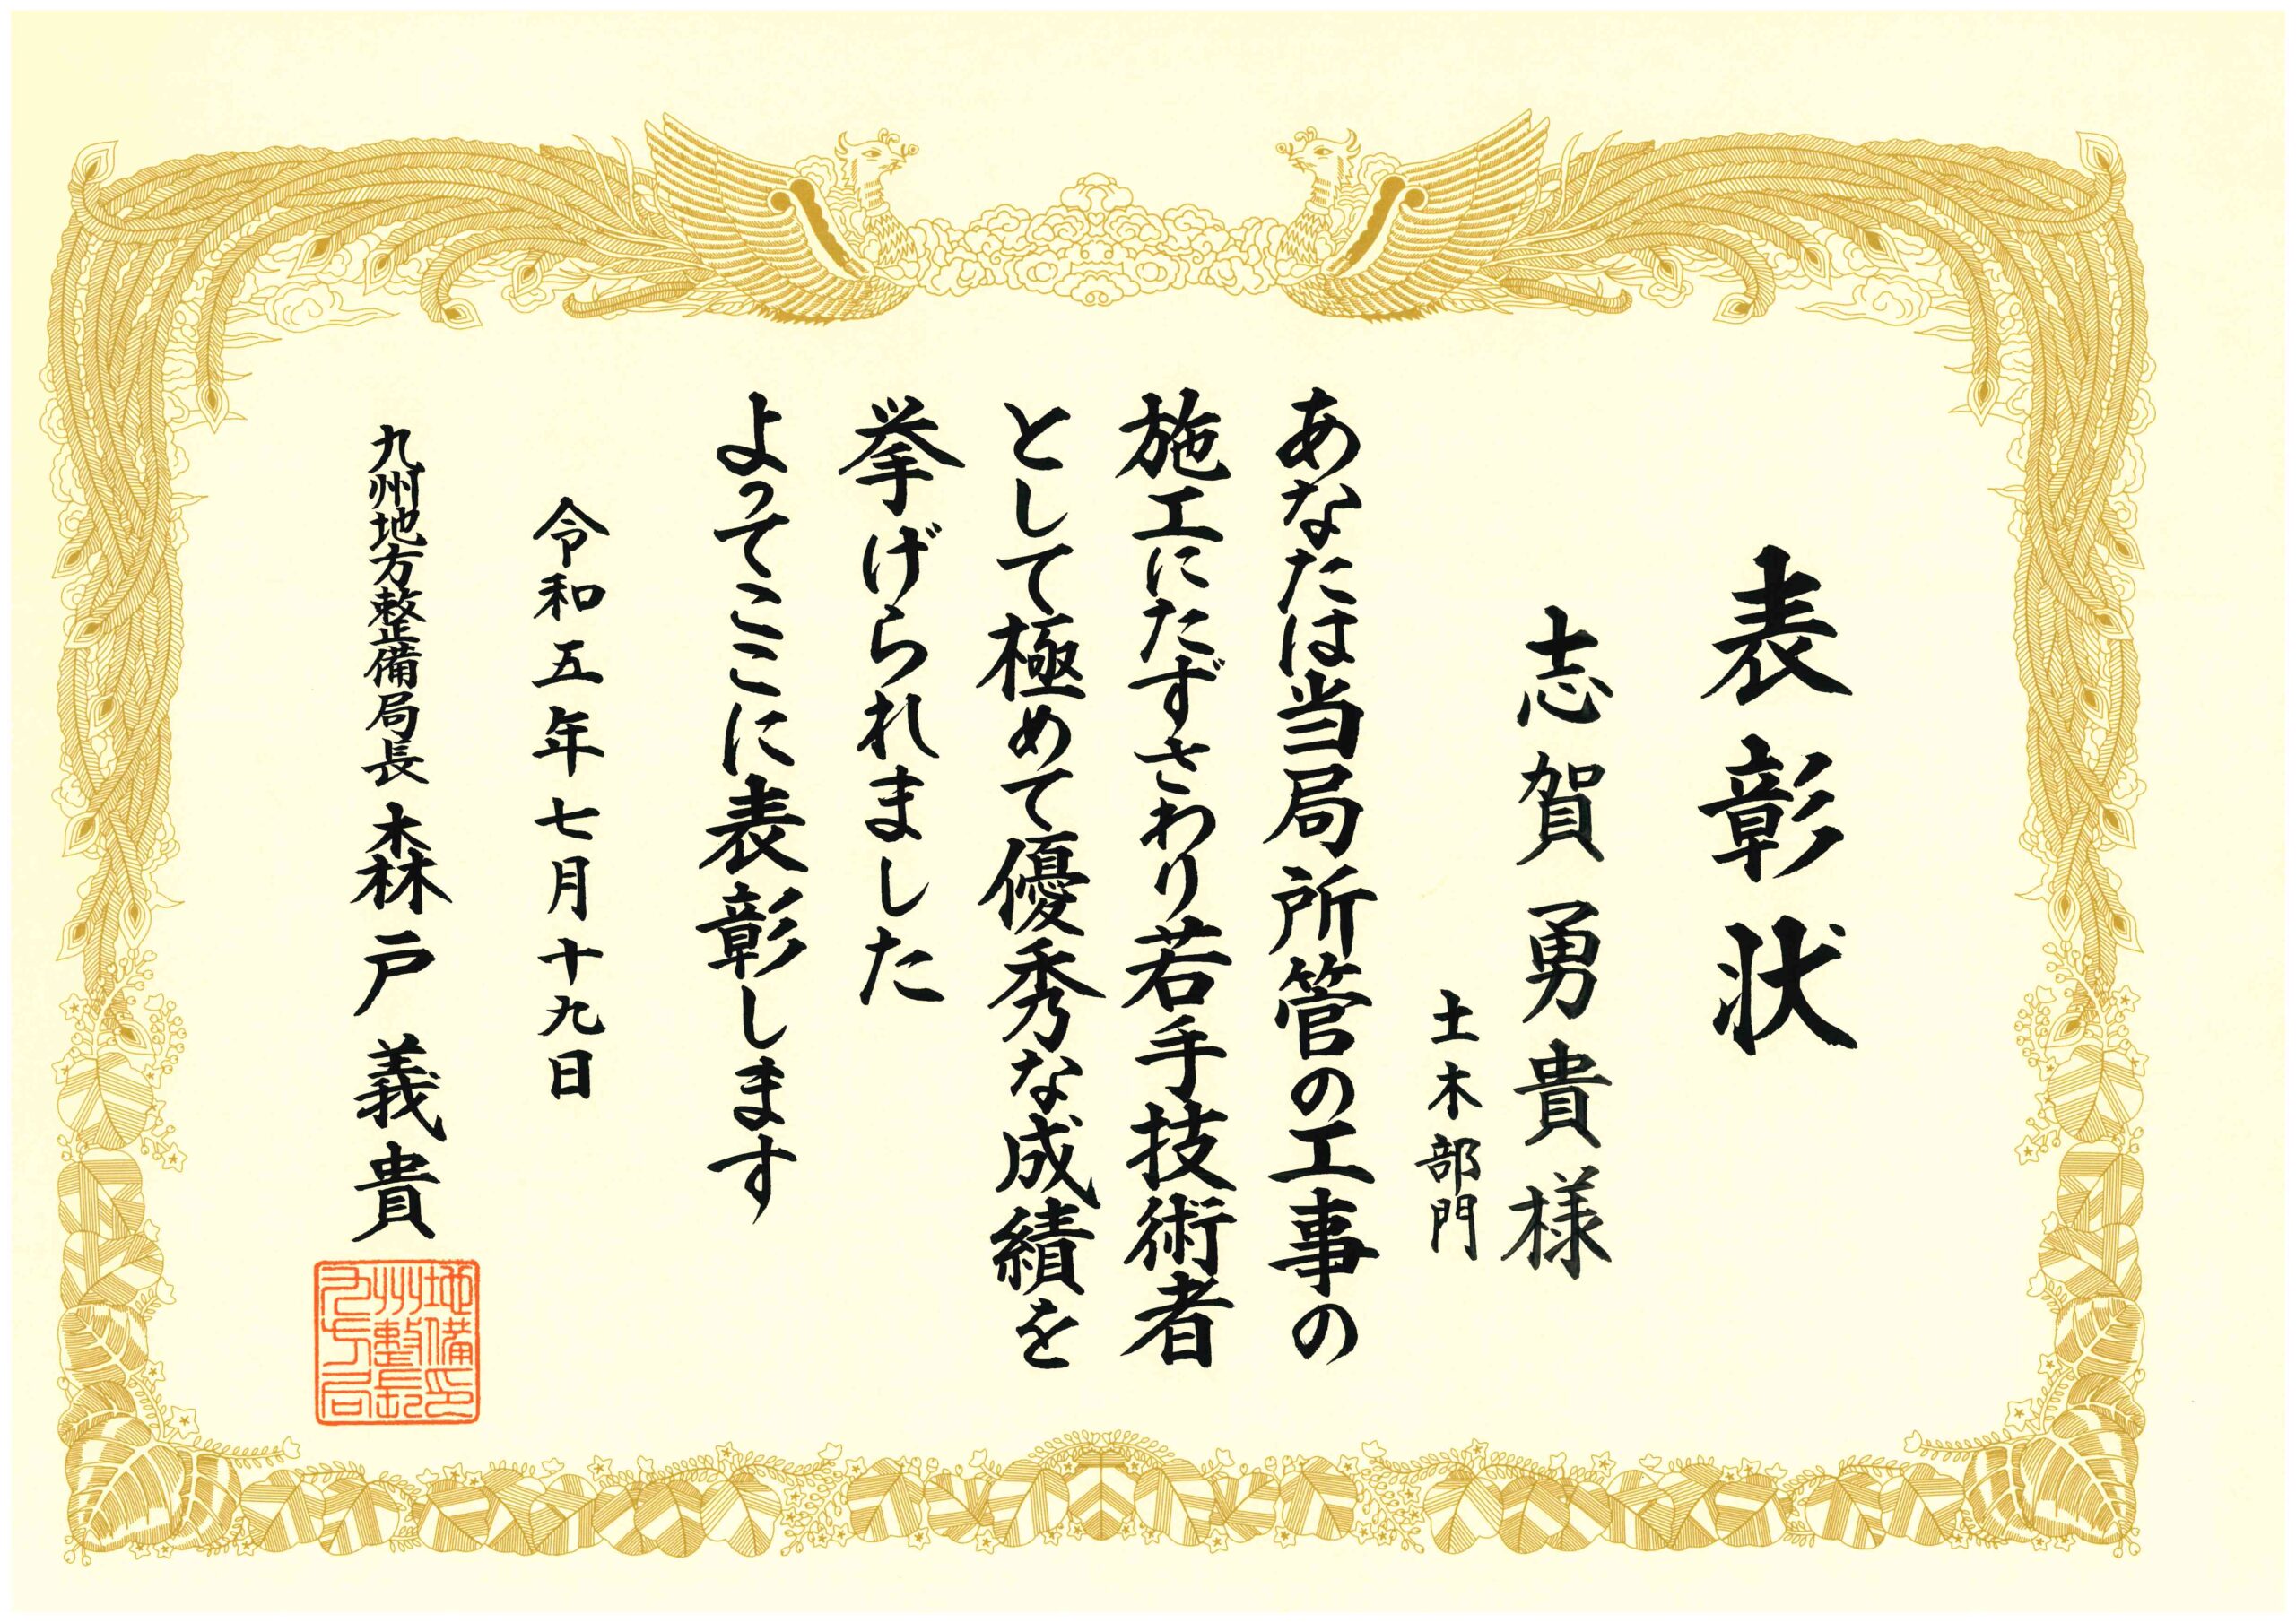 表彰状
志賀勇貴様
土木部門
あなたは当局所管の工事の
施工にたずさわり若手技術者
として極めて優秀な成績を
挙げられました
よってここに表彰します
令和五年七月十九日
九州地方整備局長 森戸義貴
九州地方整備局長印